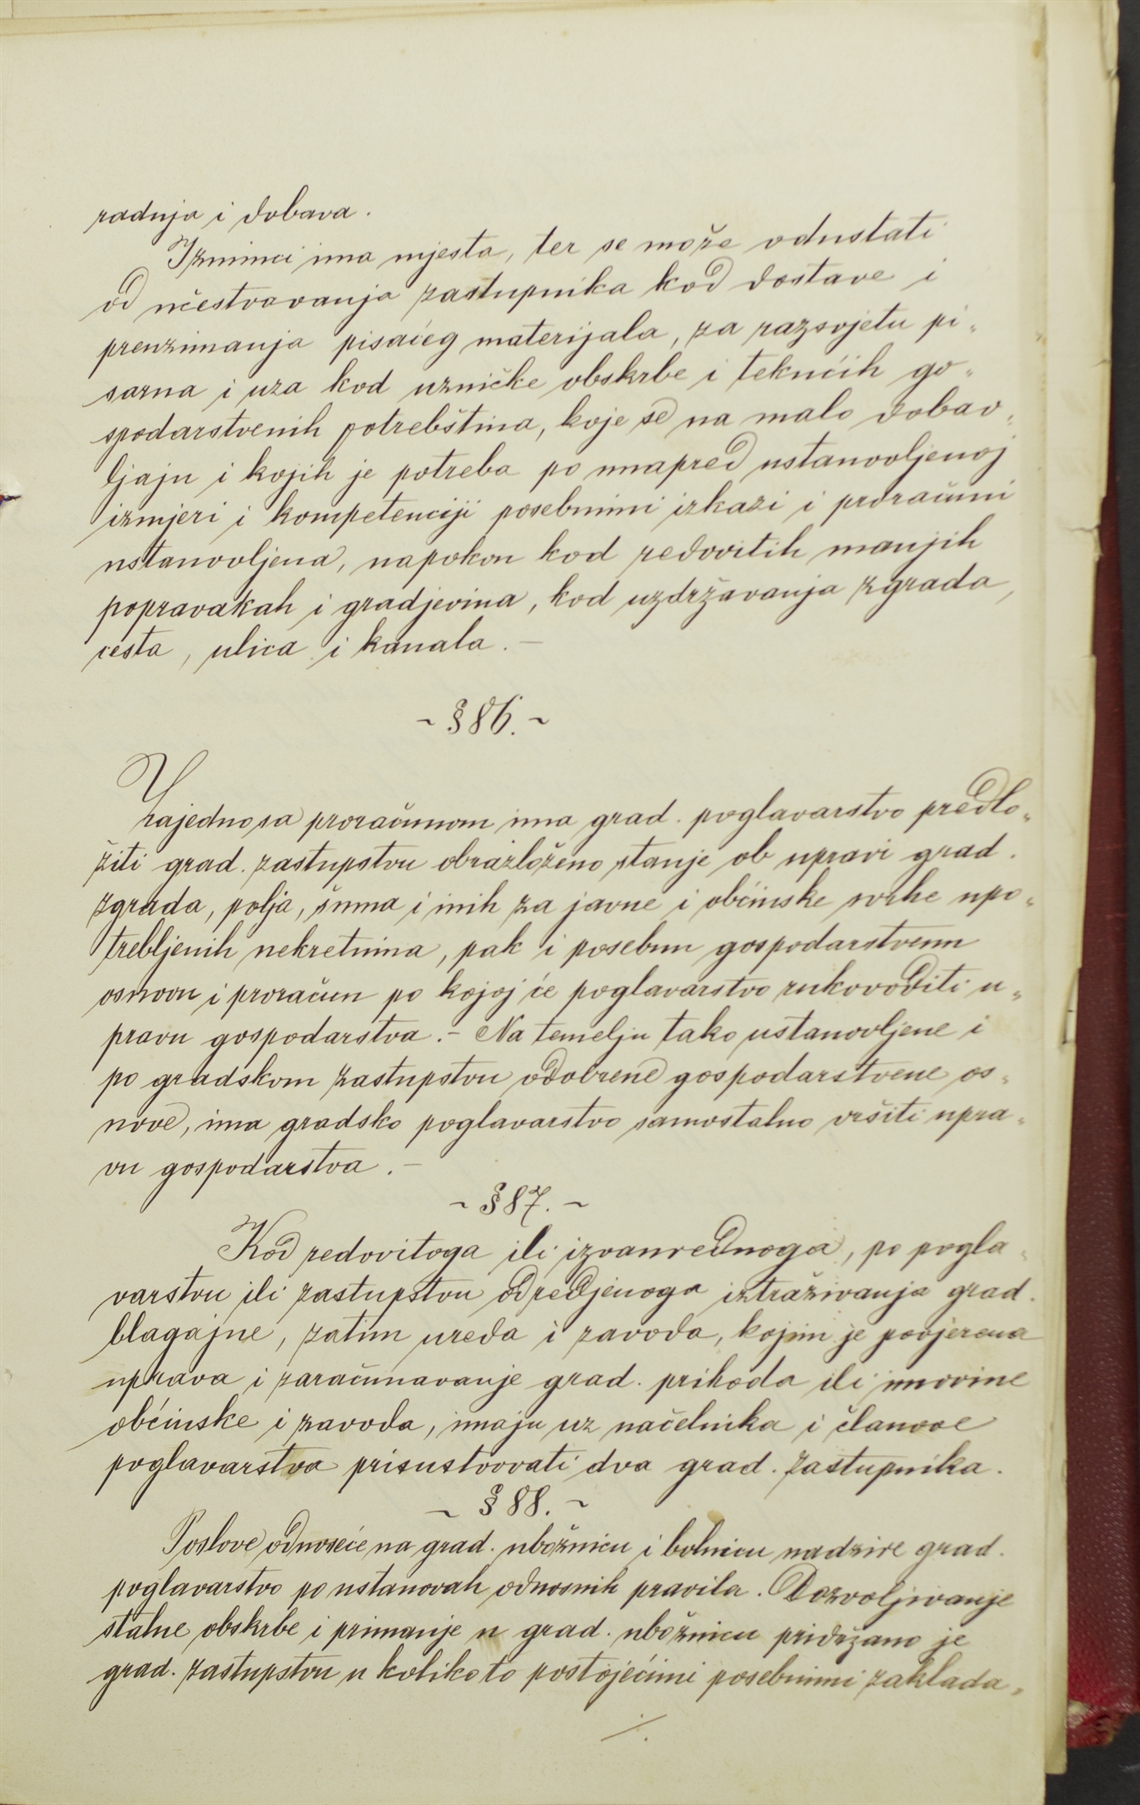 radnja i dobava.
Iznimci ima mjesta, ter se može odustati
od učestvovanja zastupnika kod dostave i
preuzimanja pisaćeg materijala, za razsvjetu pi„
sarna i uza kod uzničke obskrbe i tekućih go„
spodarstvenih potrebština, koje se na malo dobav„
ljaju i kojih je potreba po unapred ustanovljenoj
izmjeri i kompetenciji posebnimi izkazi i proračuni
ustanovljena, napokon kod redovitih manjih
popravakah i gradjevina, kod uzdržavanja zgrada,
cesta, ulica i kanala. —
~ § 86. ~
Zajedno sa proračunom ima grad. poglavarstvo predlo„
žiti grad. zastupstvu obrazloženo stanje ob upravi grad.
zgrada, polja, šuma i inih za javne i obćinske svrhe upo„
trebljenih nekretnina, pak i posebnu gospodarstvenu
osnovu i proračun po kojoj će poglavarstvo rukovoditi u„
pravu gospodarstva. — Na temelju tako ustanovljene i
po gradskom zastupstvu odobrene gospodarstvene os„
nove, ima gradsko poglavarstvo samostalno vršiti upra„
vu gospodarstva. —
~ § 87. ~
Kod redovitoga ili izvanrednoga, po pogla„
varstvu ili zastupstvu odredjenoga iztraživanja grad.
blagajne, zatim ureda i zavoda, kojim je povjerena
uprava i zaračunavanje grad. prihoda ili imovine
obćinske i zavoda, imaju uz načelnika i članove
poglavarstva prisustvovati dva grad. zastupnika.
~ § 88. ~
Poslove odnoseće na grad. ubožnicu i bolnicu nadzire grad.
poglavarstvo po ustanovah odnosnih pravila. Dozvoljivanje
stalne obskrbe i primanje u grad. ubožnicu pridržano je
grad. zastupstvu u koliko to postojećimi posebnimi zaklada„
./.